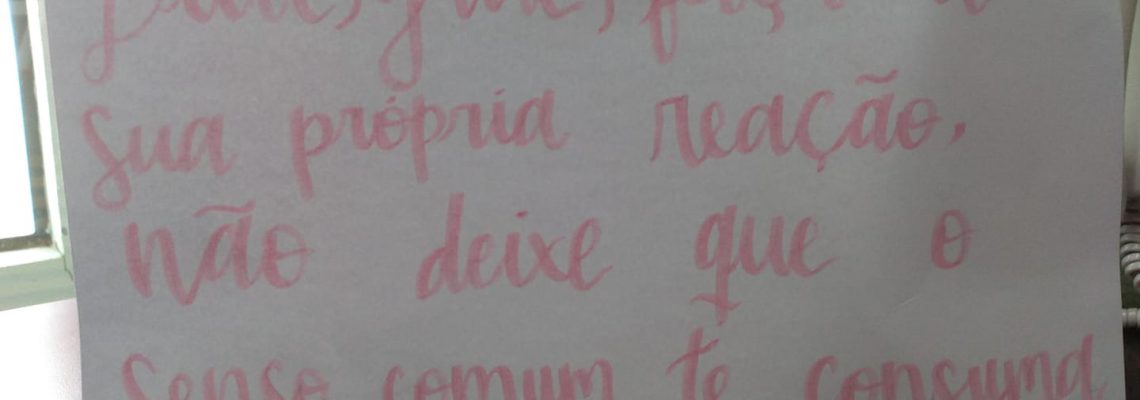 faça a
sua própria reação,
não deixe que o
senso comum te consuma